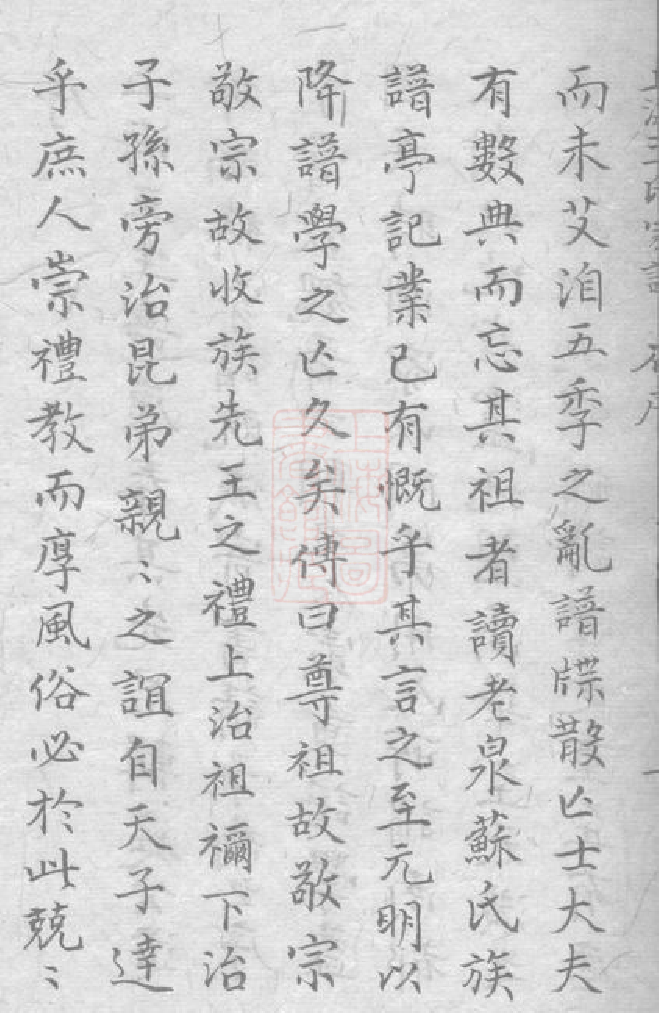 而未艾洎五季之亂譜牒散亾士大夫
有數典而忘其祖者讀老泉蘇氏族
譜亭記業已有慨乎其言之至元明以
降譜學之亾久矣傳曰尊祖故敬宗
敬宗故收族先王之禮上治祖禰下治
子孫旁治昆弟親〻之誼自天子達
乎庶人崇禮教而厚風俗必於此兢〻